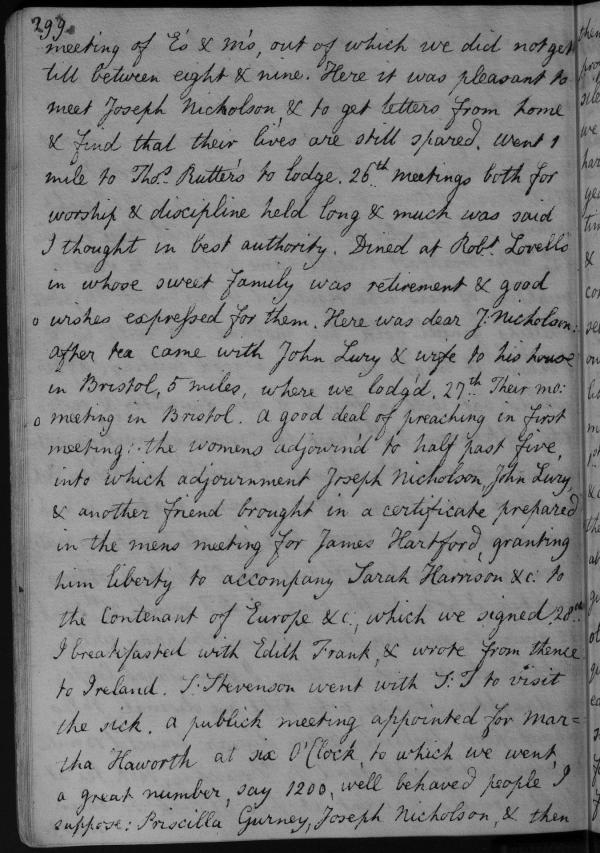 299.
meeting of E's & m's, out of which we did not get
till between eight & nine. Here it was pleasant to
meet Joseph Nicholson, & to get letters from home
& find that their lives are still spared. Went 1
mile to Thos. Rutter's to lodge. 26th meetings both for
worship & discipline held long & much was said
I thought in best authority. Dined at Robt. Lovells
in whose sweet family was retirement & good
o wishes expressed for them. Here was dear J: Nicholson:
after tea came with John Lury & wife to his house
in Bristol, 5 miles, where we lodg'd. 27th Their mo:
o meeting in Bristol. a good deal of preaching in first
meeting: the womens adjourn'd to half past five,
into which adjournment Joseph Nicholson, John Lury,
& another friend brought in a certificate prepared
in the mens meeting for James Hartford, granting
him liberty to accompany Sarah Harrison &c: to
the Contenant of Europe &c:, which we signed, 28th
I breakfasted with Edith Frank, & wrote from thence
to Ireland. S: Stevenson went with S: T to visit
the sick. a publick meeting appointed for Mar=
tha Haworth at six O'Clock, to which we went,
a great number, say 1200, well behaved people I
suppose: Priscilla Gurney, Joseph Nicholson, & then